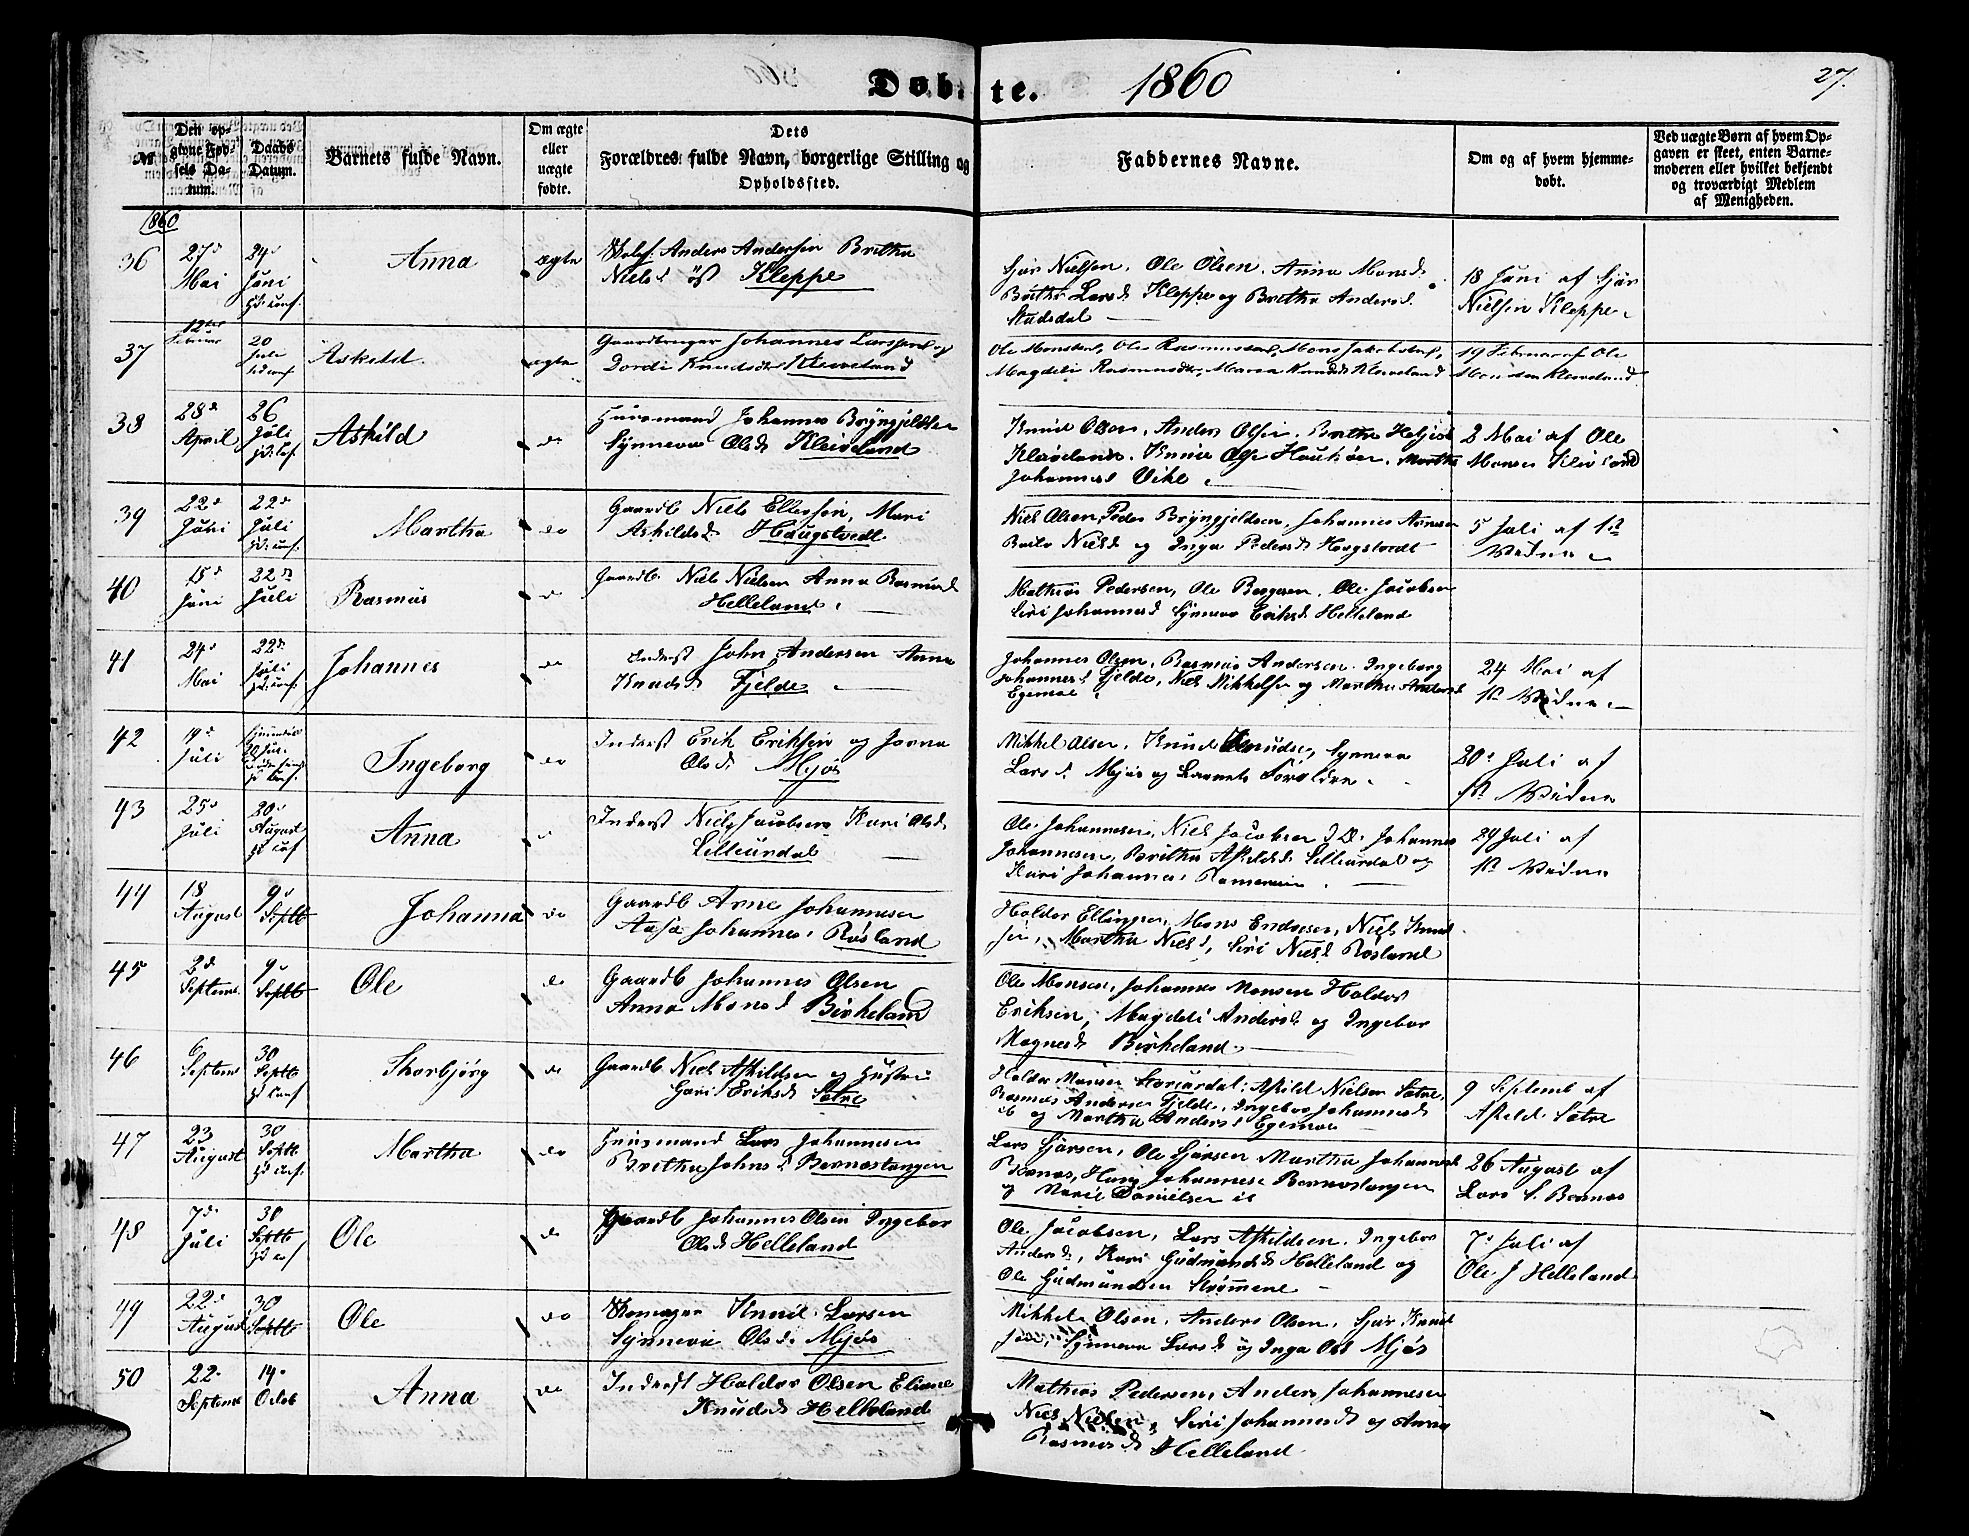 Døbte. 1860
27.
No
Den op-
givne Fød-
sels Da-
tum.
Daabs
Datum.
Barnets fulde Navn.
Om ægte
eller
uægte
fødte.
Dets
Forældres fulde Navn, borgerlige Stilling og
Opholdssted.
Faddernes Navne.
Om og af hvem hjemme-
døbt.
Ved uægte Børn af hvem Op-
gaven er skeet, enten Barne-
moderen eller hvilket bekjendt
og troværdigt Medlem
af Menigheden.
1860
36 27d Mai 24d Juni Anna ægte
Anders Andersen Britha
Nielsd Kleppe
Sjur Nielsen, Ole Olsen, Anna Monsd
Britha Larsd Kleppe og Britha Andersd
Studsdal
18 Juni af Sjur
Nielsen Kleppe
37 12te Februar 20 Juli Askild ægte
Gaardbruger Johannes Larssen og
Dordi Knudsdr Kleveland
Ole Monsen, Ole Rasmussen, Mons Jakobsen,
Magdeli Rasmusdr, Maria Knudsd Kleveland
19 Februar af Ole
Monsen Kleveland
38 28d April 26 Juli Askild do
Huusmand Johannes Bryngjeldsen
Synneva Olsd Kleiveland
Knud Olsen, Anders Olsen, Britha Helgesd
Kleiveland, Knud Olsen Haukaas, Martha
Johannesd Vike
2 Mai af Ole
Monsen Kleiveland
39 22d Juni 22d Juli Martha do
Gaardb Niels Ellefsen, Mari
Askildsd Haugstvedt
Niels Olsen, Peder Bryngjeldsen, Johannes Arnesen
Nielsd og Inga Pedersd Hogstvedt
5 Juli af
40 15d Juni 22d Juli Rasmus do
Gaardb. Niels Nielsen Anna Rasmusd
Helleland
Mathias Pedersen, Ole Bergesen, Ole Jacobsen
Siri Johannesd Synneva Eriksd Helleland
41 24d Mai 22d Juli Johannes do
Inderst John Andersen Anna
Knudsd Fjelde
Johannes Olsen, Rasmus Andersen, Ingeborg
Johannesd Fjelde, Niels Mikkelsen og Martha Andersd
Egemoe
24 Mai af
42 19d Juli Ingeborg do
Inderst Erik Eriksen og
Olsd Mjøs
Mikkel Olsen, Knud Knudsen, Synneva
Larsd Mjøs og Barnets Forældre
20d Juli af
43 25d Juli 20d August Anna
Inderst Niels Jacobsen Kari Olsd
Lilleurdal
Ole Johannesen, Niels Jacobsen Johannes
Johannesen, Britha Askildsd Lilleurdal og
Kari Johannesd
29 Juli af
44 18 August 9d Septb Johanna do
Gaardb Arne Johannesen
Aasa Johannesd Røsland
Haldor Ellingsen, Mons Endresen, Niels Knud
sen, Martha Nielsd, Siri Nielsd Røsland
45 2d Septemb 9d Septb Ole do
Gaardb Johannes Olsen
Anna Monsd Birkeland
Ole Monsen, Johannes Monsen Haldor
Eriksen, Magdeli Andersd og Ingebor
Magnesd Birkeland
46 6 Septemb 30 Septb Thorbjørg do
Gaardb Niels Askildsen og Hustru
Guri Eriksd Sætre
Haldor Monsen Storurdal, Askild Nielsen Sætre,
Rasmus Andersen Fjelde, Ingebor Johannesd
og Martha Andersd Egemoe
9 Septemb af
Askild Sætre
47 23 August 30 Septb Martha do
Huusmand Lars Johannesen
Britha Johnsd Bernæstangen
Lars Sjursen, Ole Sjursen Martha Johannesd
Bernæs, Hans Johannesen Bernæstangen
og Marie Danielsen
26 August af
Lars S. Bernæs
48 7d Juli 30 Septb Ole do
Gaardb Johannes Olsen Ingebor
Olsd Helleland
Ole Jacobsen, Lars Askildsen, Ingebor
Andersd, Kari Gudmundsd Helleland og
Ole Gudmundsen Strømmene
7d Juli af
Ole J Helleland
49 22d August 30 Septb Ole do
Skomager Knud Larsen
Synneva Olsd Mjøs
Mikkel Olsen, Anders Olsen, Sjur Knud
sen, Synneva Larsd og Inga Olsd Mjøs
50 22 Septemb 14 Octob Anna do
Inderst Haldor Olsen
Knudsd Helleland
Mathias Pedersen, Anders Johannesen
Niels Nielsen, Siri Johannesd og Anna
Rasmusd Helleland